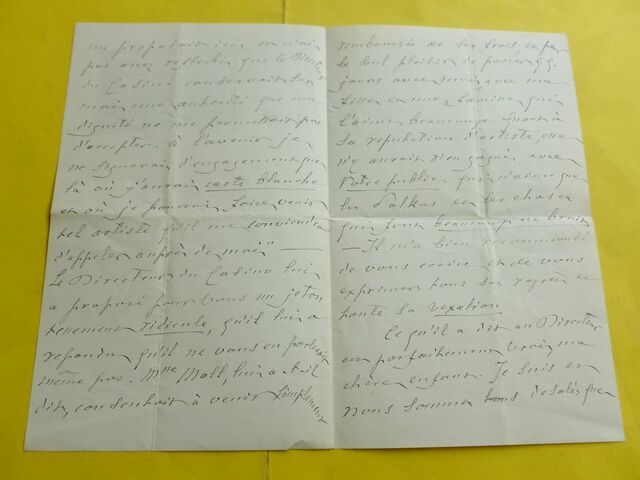 me proposait ici, en n'ai
pas assez réfléchi que le Directeur
du Casino conservait sur
moi une autorité que ma
dignité ne me permettait pas
d'accepter. à l'avenir je
ne signerai d'engagement que
là où j'aurai carte blanche
et où je pourrai faire venir
tel artiste qu'il me conviendra
d'appeler auprès de moi" —
Le Directeur du Casino lui
a proposé pour vous un jeton
tellement ridicule, qu'il lui a
répondu qu'il ne vous en parlerait
même pas. Mme Moll, lui a-t-il
dit, consentait à venir simplement
remboursée de ses frais, et par
le seul plaisir de passer q.q.
jours avec moi, avec ma
fille et ma famille qui
l'aime beaucoup. Quant à
sa réputation d'artiste, elle
n'y aurait rien gagné, avec
votre public qui n'aime que
les et les choses
qui font beaucoup de bruit
— Il m'a bien recommandé
de vous écrire et de vous
exprimer tous ses regrets et
toute sa vexation
Ce qu'il a dit au Directeur
est parfaitement vrai, ma
chère enfant. Je suis et
nous sommes tous désolés que